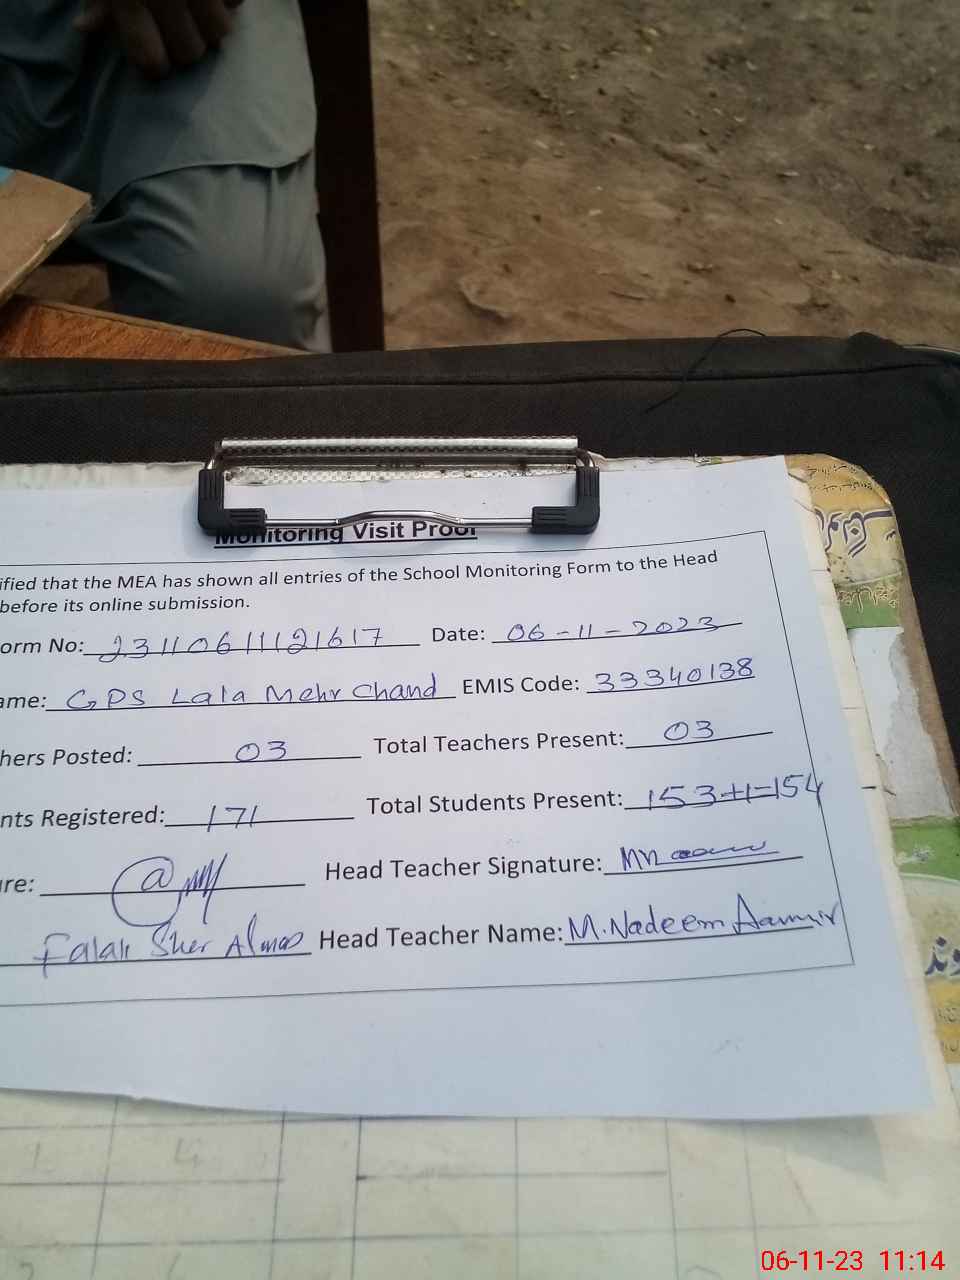 Monitoring Visit Proof
ified that the MEA has shown all entries of the School Monitoring Form to the Head
before its online submission.
orm No: 23110611121617 Date: 06-11-2023
ame: GPS Lala Mehr Chand EMIS Code: 33340138
hers Posted: 03 Total Teachers Present: 03
nts Registered: 171 Total Students Present: 153+1=154
re: Head Teacher Signature:
Falak Sher Almas Head Teacher Name: M. Nadeem Aamir
06-11-23 11:14